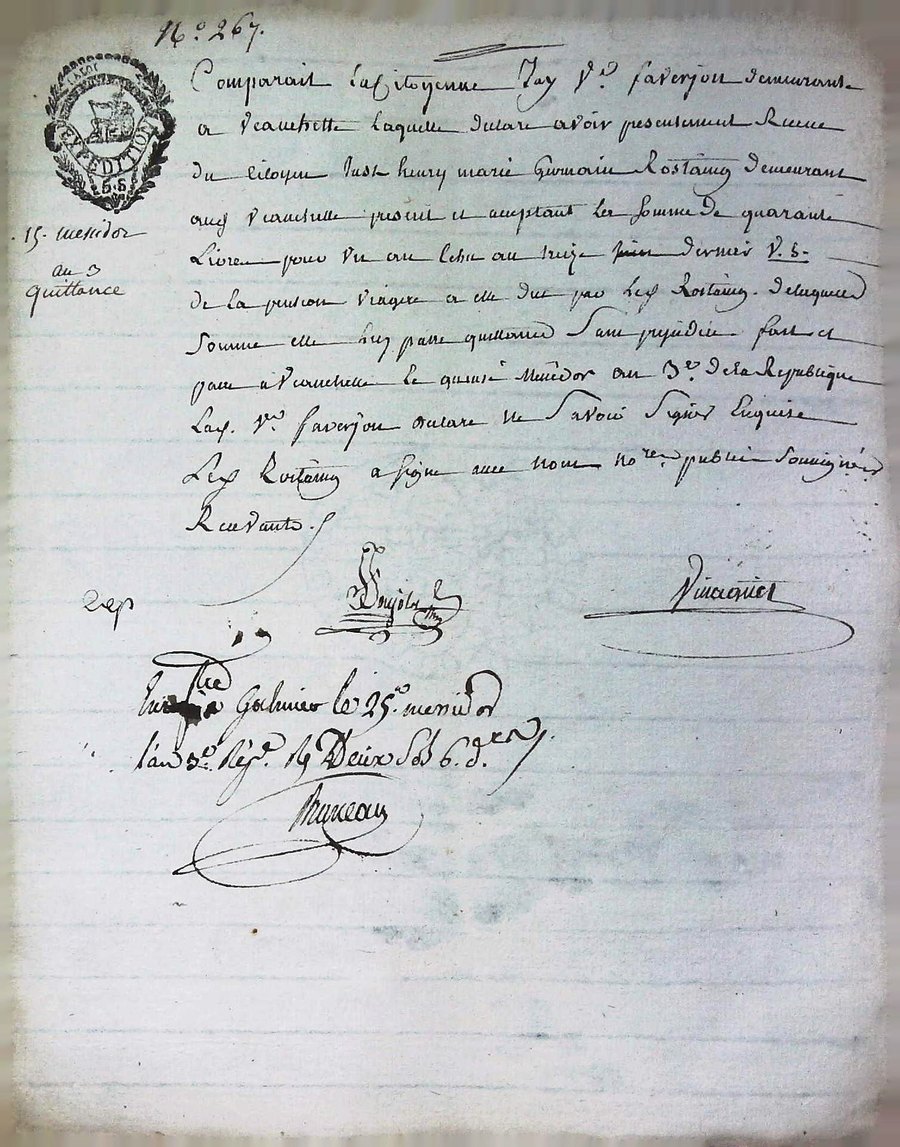 N.° 267.
EXPEDITION
5.S
15. messidor
an 3
quittance
Comparait La Citoyenne Jay V.e faverjon demeurant
a veauchette Laquelle declare avoir presentement Recue
du Citoyen Just henry marie Germain Rostaing demeurant
aud veauchette present et acceptant La Somme de quarante
Livres pour un an Echu au treize juin dernier V. S.
de la pension viagere a elle due par Led Rostaing. delaquelle
Somme elle Luy passe quittance Sans prejudice fait et
passé à Veauchette le quinze Messidor an 3.e de la Republique
Lad. V.e faverjon declare ne Savoir Signer Enquise
Led Rostaing a signe avec nous no.re public Soussigné
Recevante.
Galmier le 25.e messidor
l'an 3.e Rép.e R Deux Sols 6. d.rs
Bruneau